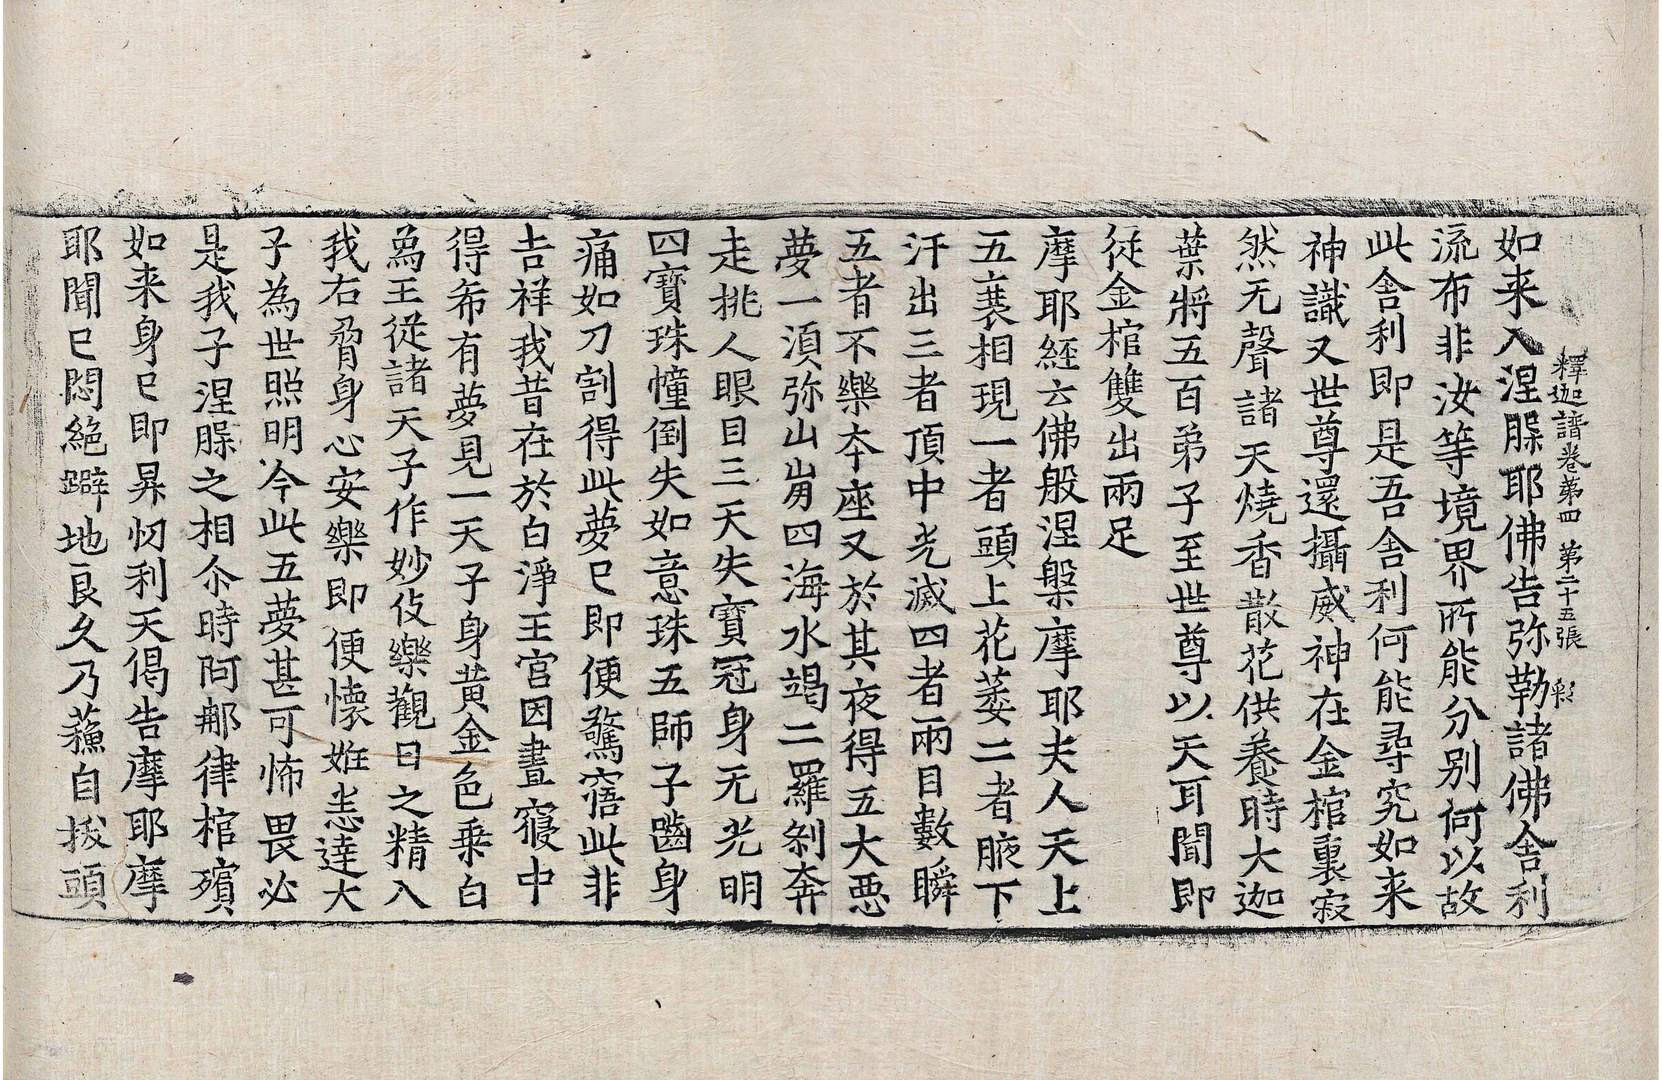 釋迦譜卷第四 第二十五張 彩
如来入涅槃耶佛告弥勒諸佛舎利
流布非汝等境界所能分別何以故
此舎利即是吾舎利何能尋究如来
神識又世尊還攝威神在金棺裏寂
然无聲諸天燒香散花供養時大迦
葉將五百弟子至世尊以天耳聞即
従金棺雙出兩足
摩耶経云佛般涅槃摩耶夫人天上
五衰相現一者頭上花萎二者腋下
汗出三者頂中光滅四者兩目數瞬
五者不樂夲座又於其夜得五大悪
夢一湏弥山崩四海水竭二羅剎奔
走挑人眼目三天失寶冠身无光明
四寶珠幢倒失如意珠五師子齧身
痛如刀割得此夢已即便驚寤此非
吉祥我昔在於白淨王宮因晝寢中
得希有夢見一天子身黃金色乗白
爲王従諸天子作妙伎樂觀日之精入
我右脅身心安樂即便懐姙悉達大
子為世照明今此五夢甚可怖畏必
是我子涅槃之相尒時阿那律棺殯
如来身已即昇忉利天偈告摩耶摩
耶聞已悶絕躃地良久乃蘓自拔頭